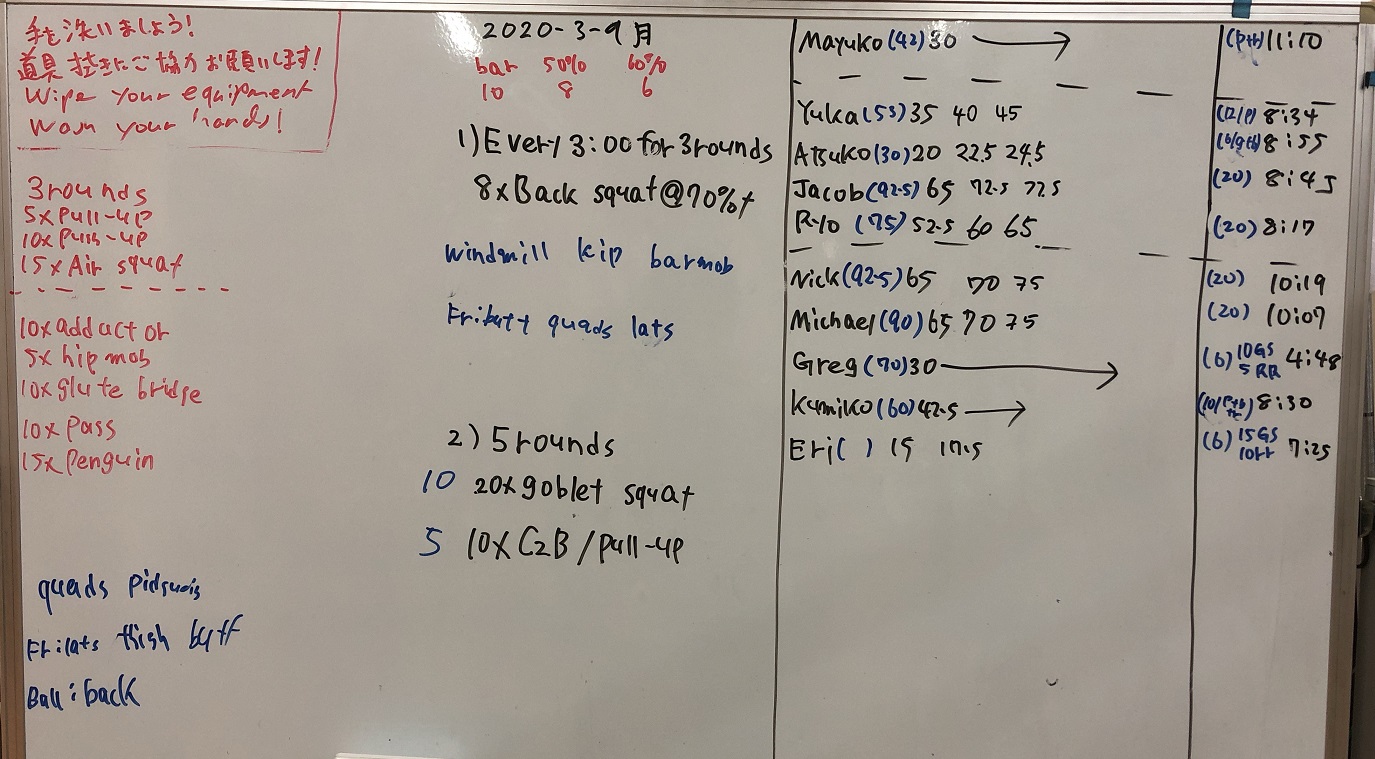 手を洗いましょう!
道具拭きにご協力お願いします!
Wipe your equipment
Wash your hands!
3rounds
5xPull-up
10xPush-up
15xAir squat
10xadductor
5xhip mob
10xglute bridge
10xPass
15xPenguin
quads
Fr:lats thigh butt
Ball:back
2020-3-9月
bar 50% 60%
10 8 6
1)Every 3:00 for 3rounds
8xBack squat@70%↑
windmill kip barmob
Fr:butt quads lats
2) 5rounds
10 20xgoblet squat
5 10xC2B/Pull-up
Mayuko(42)30 → (P+b) 11:10
Yuka(53)35 40 45 (12/P) 8:34
Atsuko(30)20 22.5 24.5 8:55
Jacob(92.5)65 72.5 77.5 (20) 8:45
Ryo (75) 52.5 60 65 (20) 8:17
Nick(92.5)65 70 75 (20) 10:19
Michael(90)65 70 75 (20) 10:07
Greg(70)30 → (6) 10GS 5RR 4:48
Kumiko(60)42.5 → 8:30
Eri( ) 15 17.5 (6) 15GS 10rr 7:25